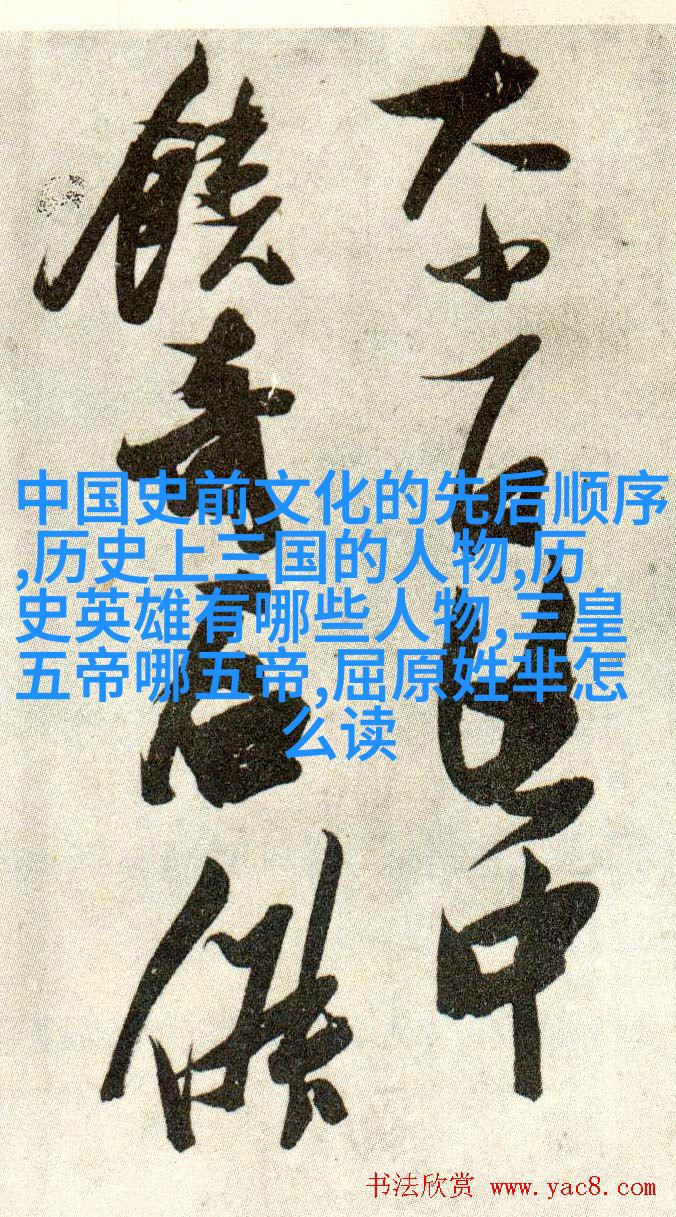 大小中
饒奇石
中国史前文化的先后顺序
,历史上三国的人物,历
史英雄有哪些人物,三皇
五帝哪五帝,屈原姓芈怎
么读
书法欣赏 www.yac8.com